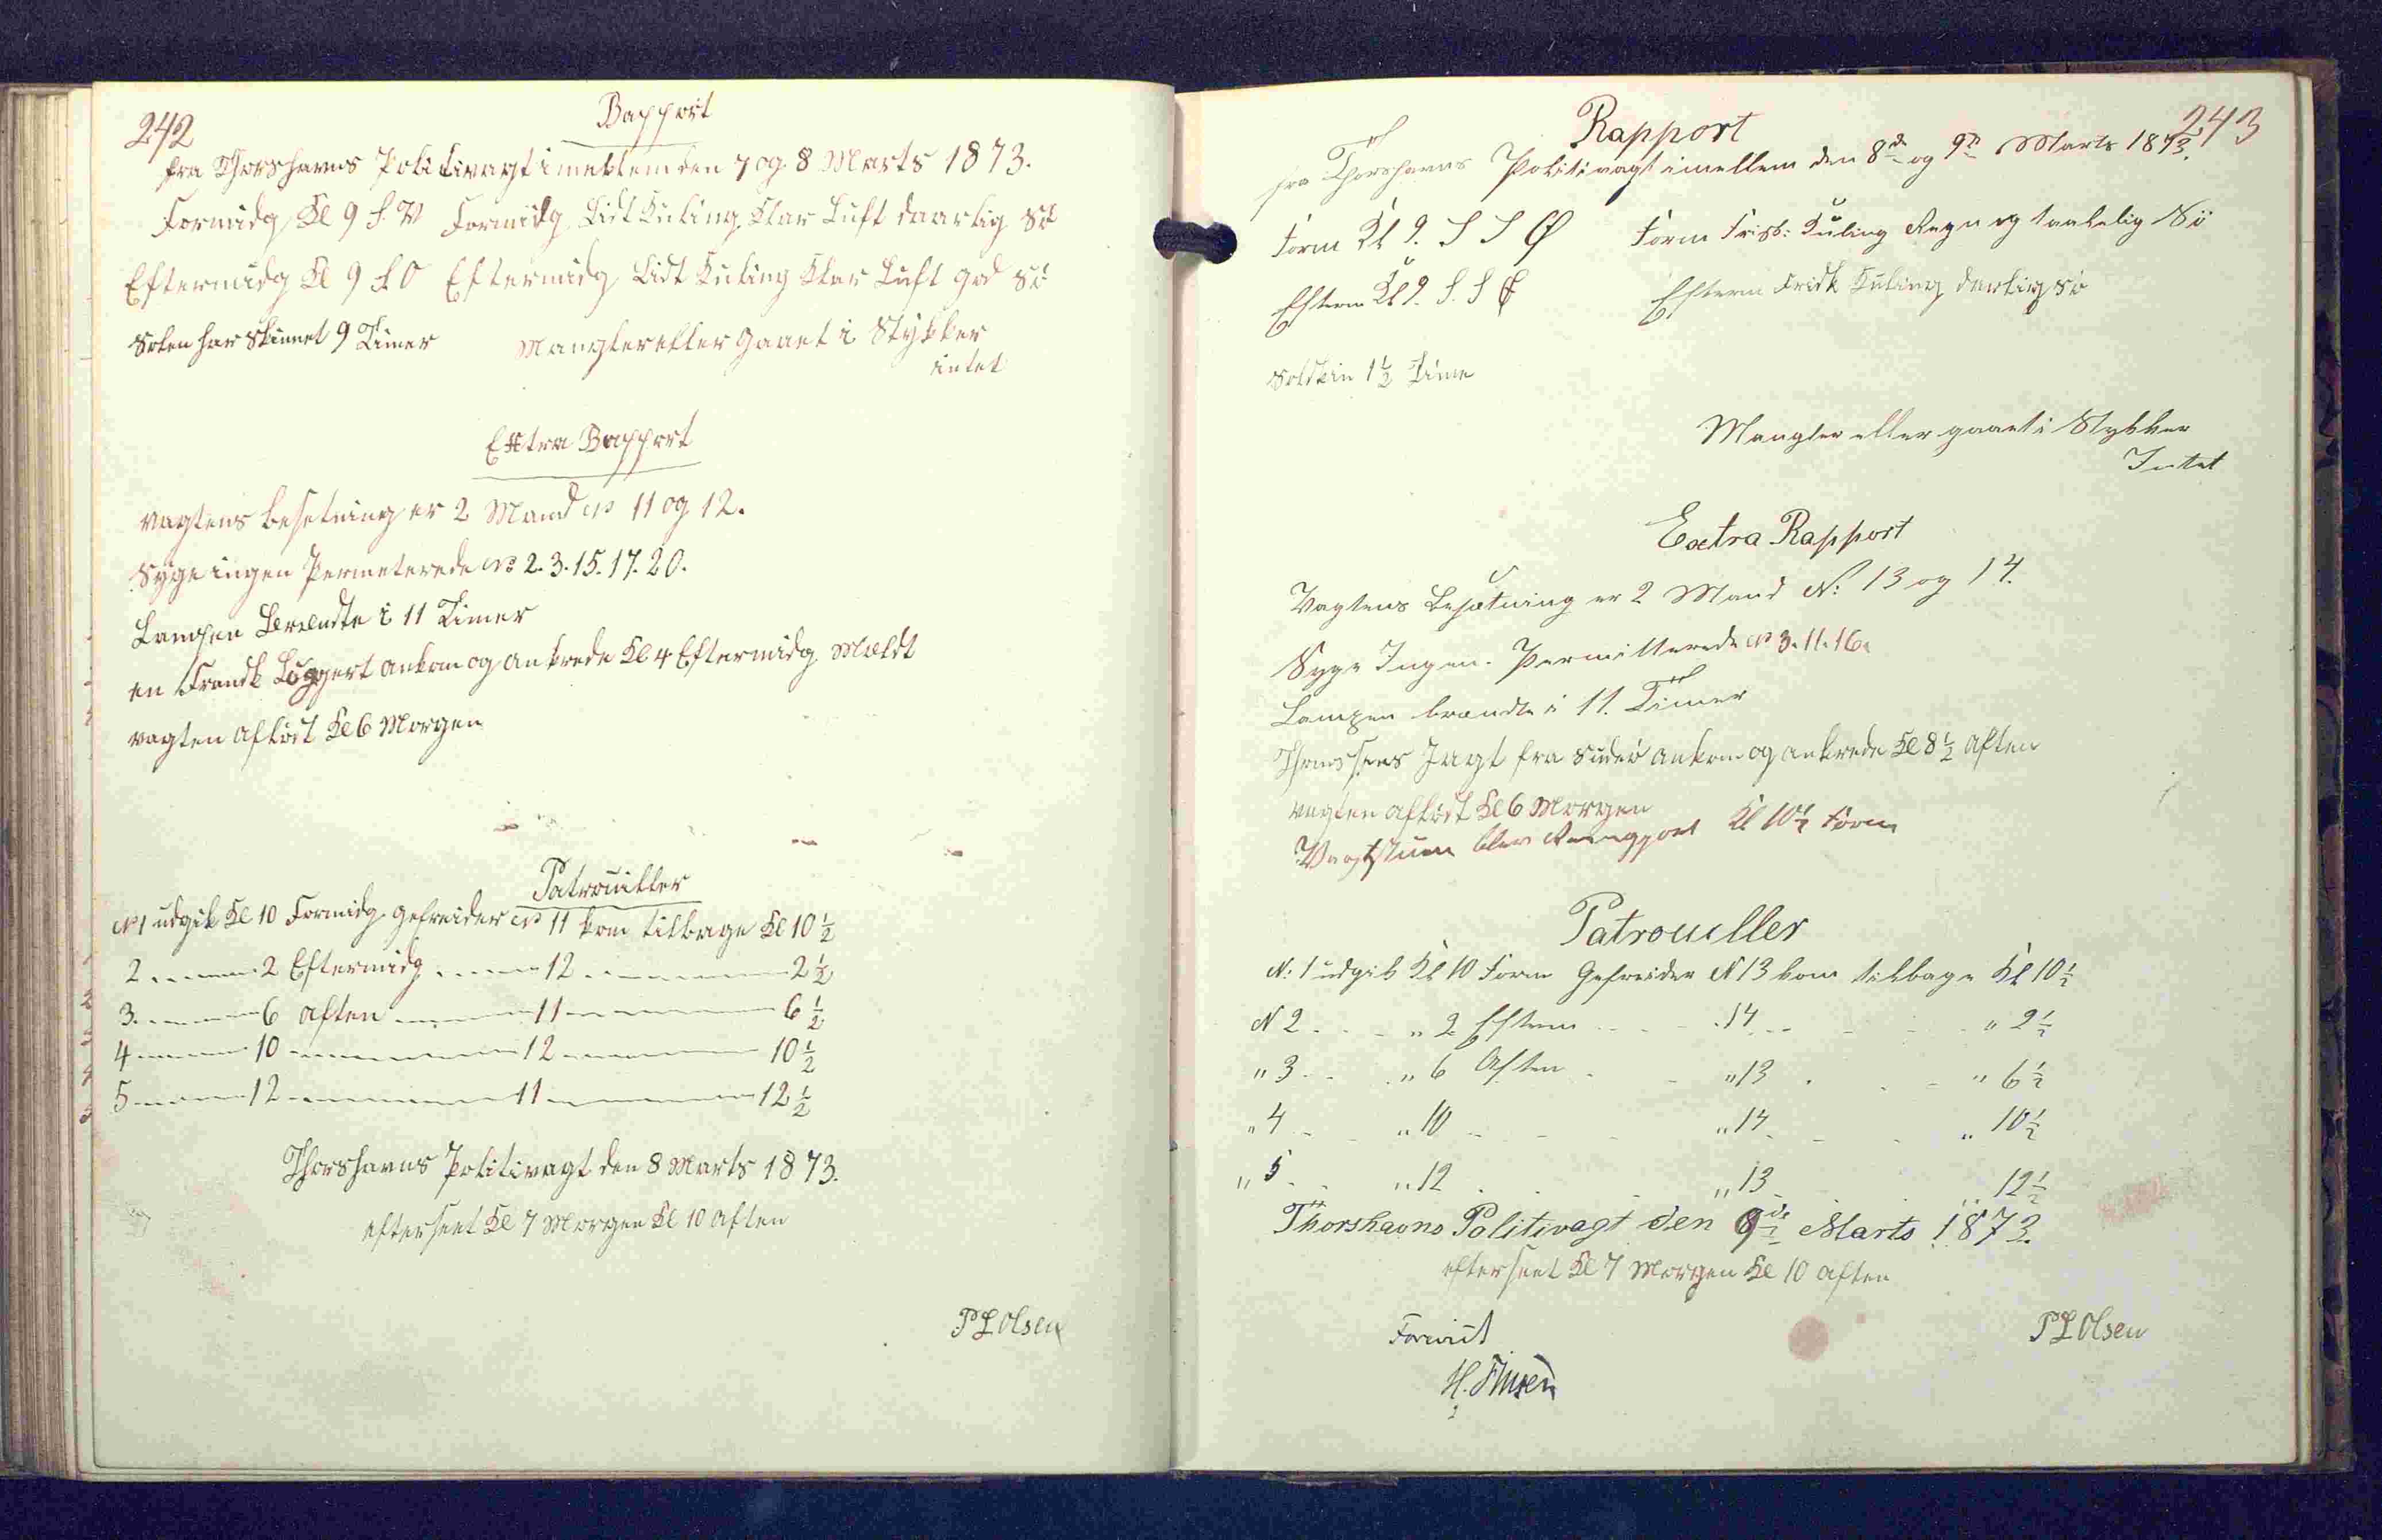 242
Rapport
fra Thorshavns Politivagt imellem den 7 og 8 Marts 1873.
Formidg Kl 9 S V Formidg Lidt Kuling Klar Luft daarlig Sø
Eftermidg Kl 9 S O Eftermidg Lidt Kuling Klar Luft god Sø
Solen har Skinnet 9 Timer Mangler eller gaaet i Stykker
intet
Extra Rapport
vagtens besetning er 2 Mand No 11 og 12.
Syge ingen Permeterede No 2. 3. 15. 17. 20.
Lampen Brændte i 11 Timer
en Fransk Loggert ankom og ankrede Kl 4 Eftermidg Mældt
vagten afløst Kl 6 Morgen
Patrouiller
No 1 udgik Kl 10 Formidg gefreider No 11 kom tilbage Kl 10 1/2
2 2 Eftermidg 12 2 1/2
3 6 aften 11 6 1/2
4 10 12 10 1/2
5 12 11 12 1/2
Thorshavns Politivagt den 8 Marts 1873.
efterseet Kl 7 Morgen Kl 10 aften
P L Olsen
243
Rapport
fra Thorshavns Politivagt imellem den 8de og 9de Marts 1873.
Form Kl 9. S S Ø Form Frisk: Kuling Regn og taakelig Sø
Efterm Kl 9. S. S Ø Efterm Fridk Kuling darlig sø
Solskin 1 1/2 Time
Mangler eller gaaet i Stykker
Intet
Extra Rapport
Vagtens Besætning er 2 Mand N: 13 og 14.
Syge Ingen. Permitterede No 3. 11. 16.
Lampen brændte i 11. Timer
Jagt fra Suderø ankom og ankrede Kl 8 1/2 aften
vagten afløst Kl 6 Morgen
Vagtstuen blev Reengjort Kl 10 1/2 Form
Patrouller
N: 1 udgik Kl 10 Form Gefreider N 13 kom tilbage Kl 10 1/2
N 2 " 2 Efterm 14 " 2 1/2
" 3 " 6 Aften " 13 " 6 1/2
" 4 " 10 " 14 " 10 1/2
" 5 " 12 " 13 " 12 1/2
Thorshavns Politivagt den 9de Marts 1873.
efterseet Kl 7 Morgen Kl 10 aften
Foreviist
P L Olsen
H. Finsen